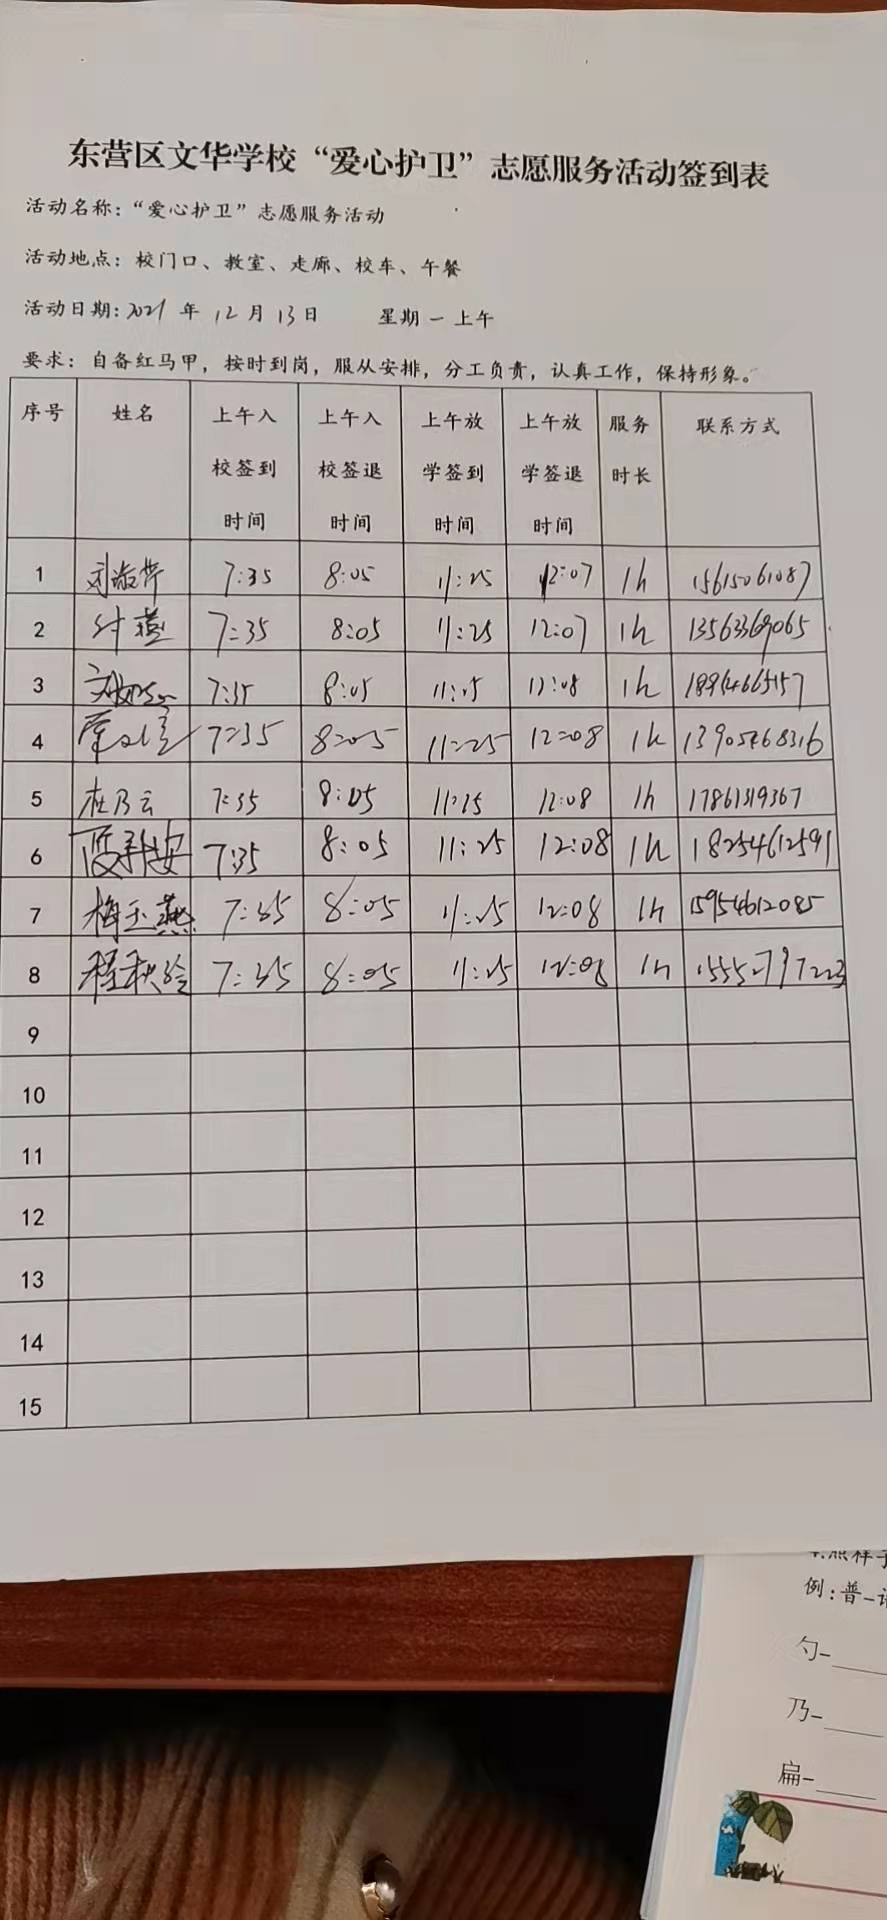 东营区文华学校“爱心护卫”志愿服务活动签到表
活动名称：“爱心护卫”志愿服务活动
活动地点：校门口、教室、走廊、校车、午餐
活动日期：2021年12月13日 星期一上午
要求：自备红马甲，按时到岗，服从安排，分工负责，认真工作，保持形象。
序号 姓名 上午入校签到时间 上午入校签退时间 上午放学签到时间 上午放学签退时间 服务时长 联系方式
1 7:35 8:05 11:25 12:07 1h 15615061087
2 7:35 8:05 11:25 12:07 1h 13563369065
3 7:35 8:05 11:25 12:08 1h
4 7:35 8:05 11:25 12:08 1h 13905468316
5 杜乃云 7:35 8:05 11:25 12:08 1h 17861319367
6 7:35 8:05 11:25 12:08 1h 18254612591
7 梅玉燕 7:35 8:05 11:25 12:08 1h 15954612085
8 程秋玲 7:35 8:05 11:25 12:08 1h 15552797223
9
10
11
12
13
14
15
例：普–
勺–
乃–
扁–